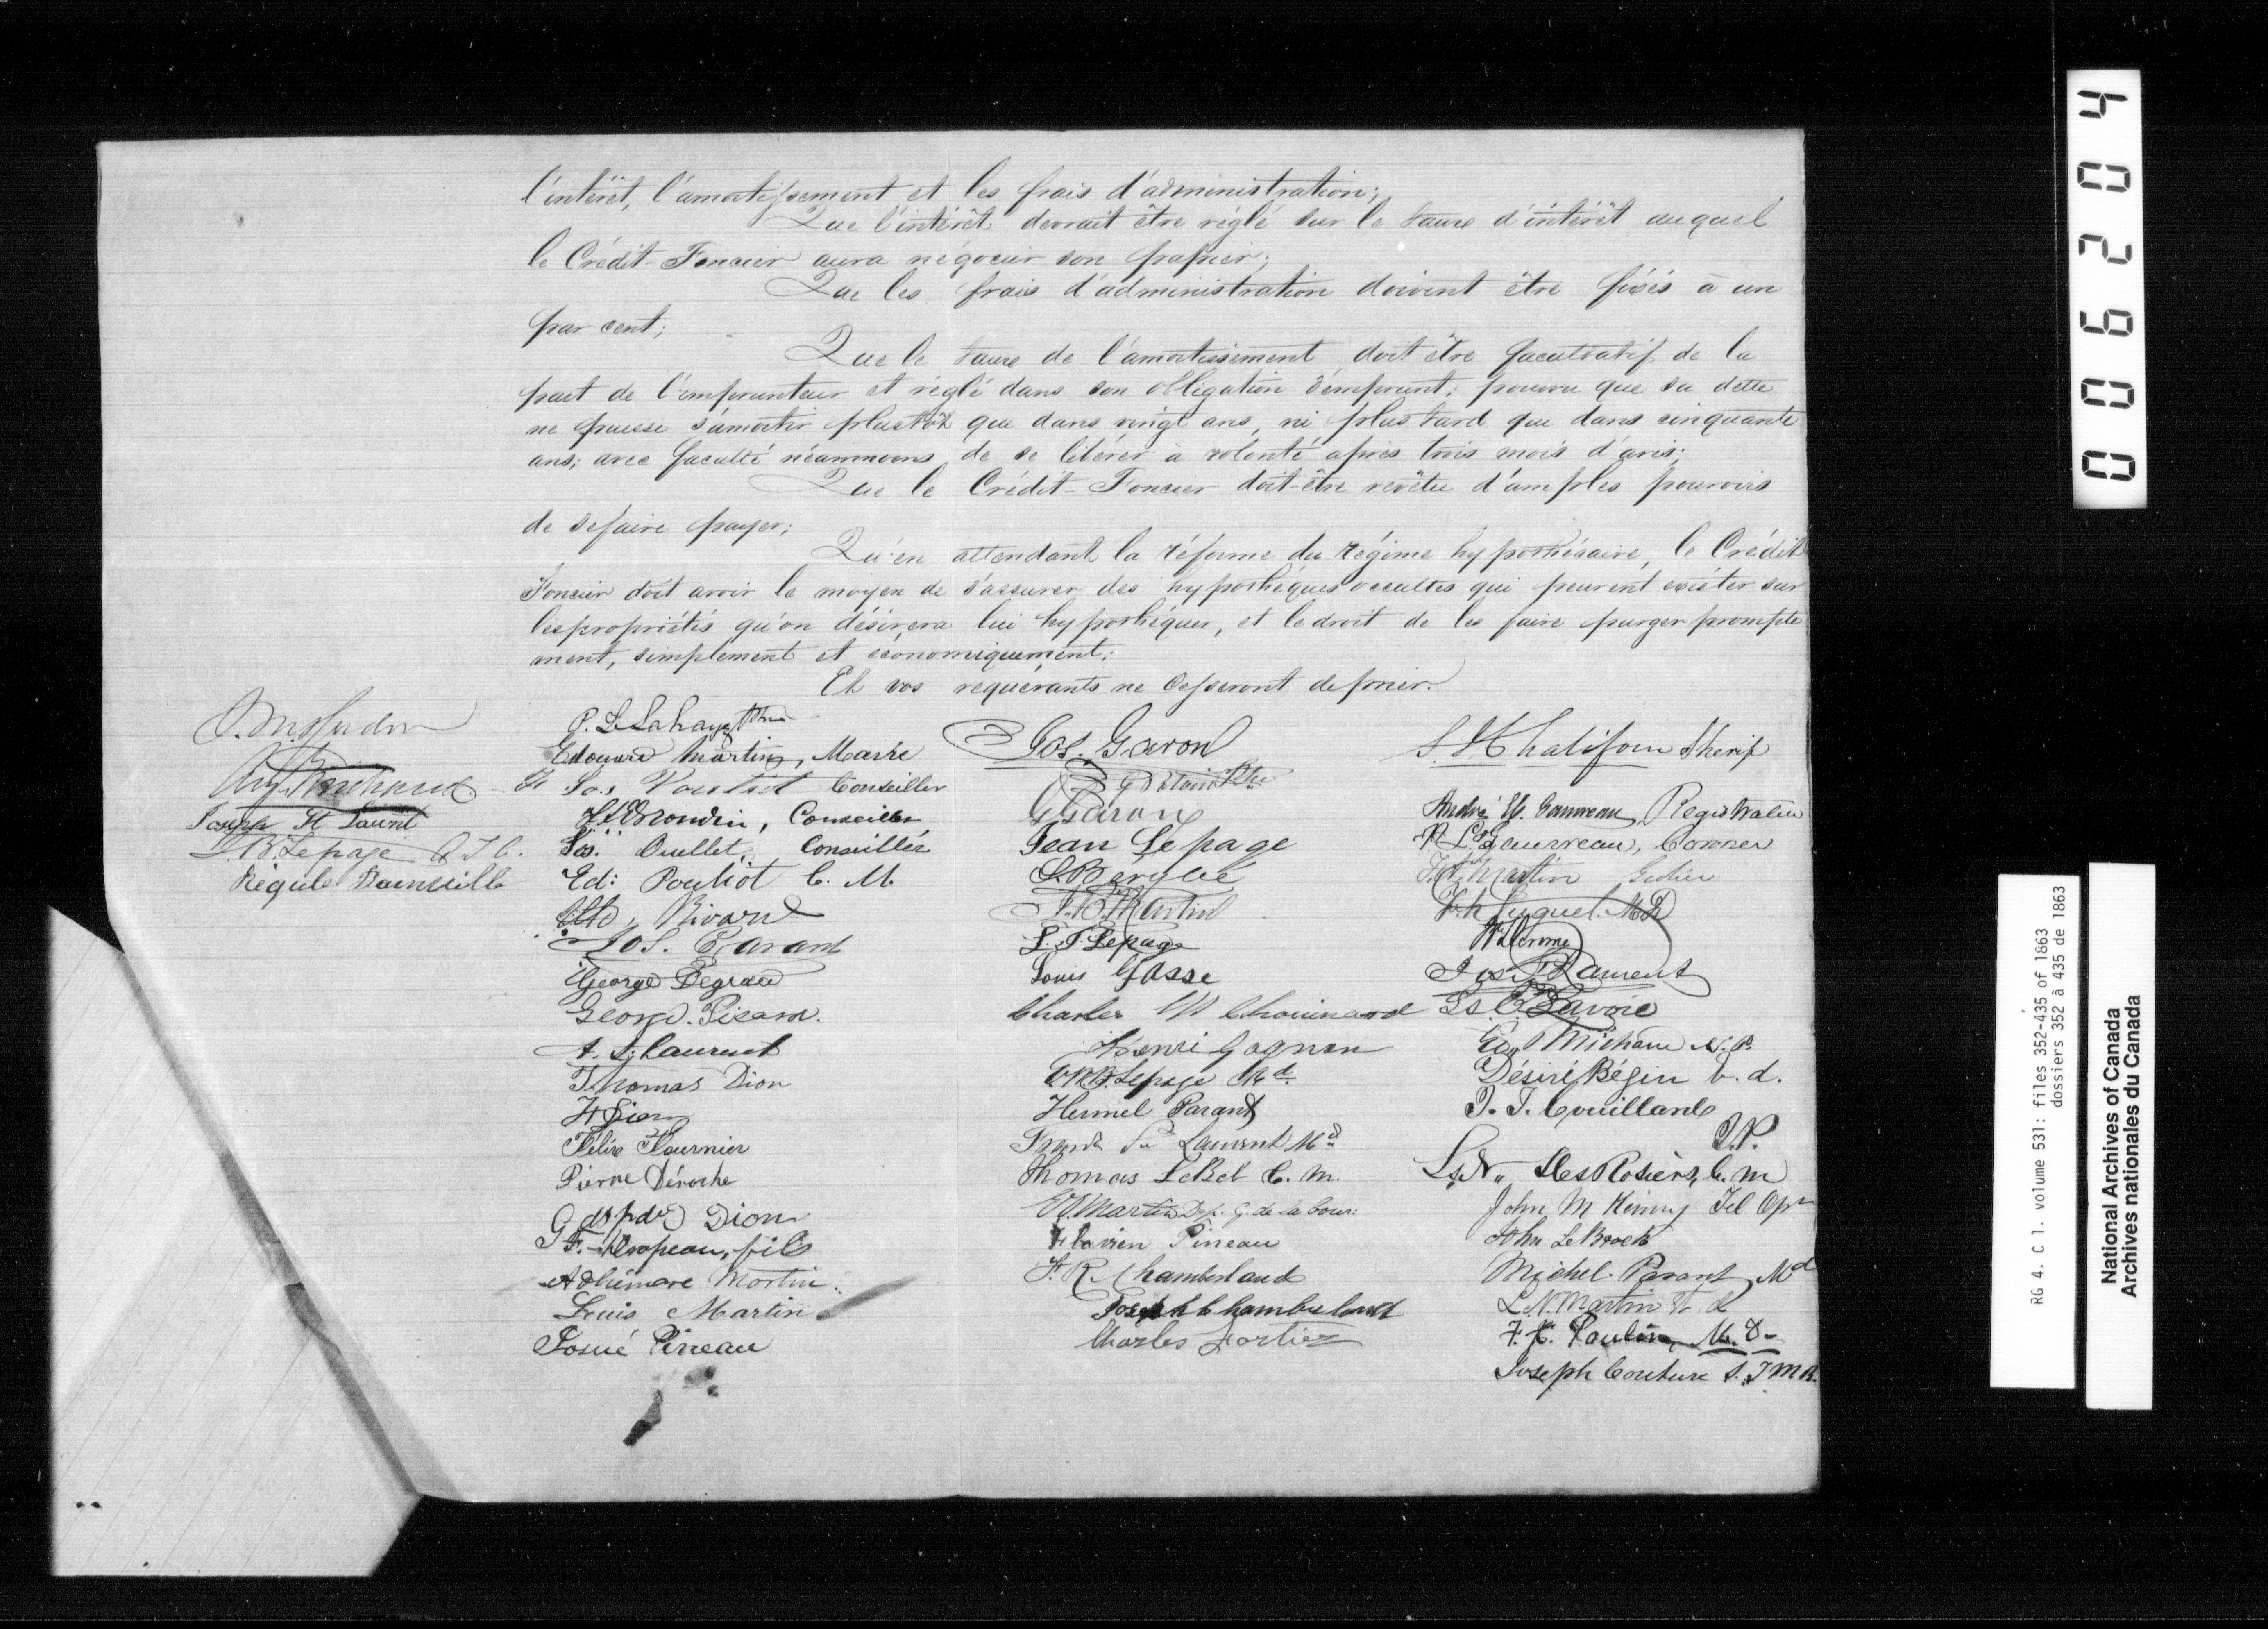 l'intérêt, l'amortissement et les frais d'administration;
Que l'intérêt devrait être réglé sur le taux d'intérêt auquel
le Crédit-Foncier aura négocier son papier;
Que les frais d'administration doivent être fixés à un
par cent;
Que le taux de l'amortissement doit être facultatif de la
part de l'emprunteur et réglé dans son obligation d'emprunt; pourvu que sa dette
ne puisse s'amortir plustôt que dans vingt ans, ni plus tard que dans cinquante
ans; avec faculté néammoins de se libérer à volonté après trois mois d'avis;
Que le Crédit-Foncier doit-être revêtu d'amples pouvoirs
de se faire payer;
Qu'en attendant la réforme du régime hypothécaire, le Crédit
Foncier doit avoir le moyen de s'assurer des hypothèques occultes qui peuvent exister sur
les propriétés qu'on désirera lui hypothéquer, et le droit de les faire purger prompte
ment, simplement et économiquement;
Et vos requérants ne cesseront de prier.
Joseph St Laurent
J. B. Lepage
Régule Banville
P. L. Lahaye Ptre
Edouard Martin, Maire
Jos Pouliot Conseiller
Conseiller
Jos. Ouellet, Conseiller
Ed: Pouliot C. M.
Rivard
Jos. Parant
George Degrace
George Picard.
A. St Laurent
Thomas Dion
F Dion
Félix Fournier
Pierre Déroche
Dion
fils
Adhémare Martin
Louis Martin
Josué Pineau
Jos. Garon
G Potvin Ptre
G Garon
Jean Lepage
S. Bérubé
J. B. Martin
L. T. Lepage
Louis Gasse
Charles Chouinard
Henri Gagnon
Lepage Md
Hermel Parant
St Laurent Md
Thomas LeBel C. M.
Martin Dep. G. de la Cour
Flavien Pineau
F. R. Chamberland
Joseph Chamberland
Charles Fortier
Chalifour Sherif
André Gauvreau, Registrateur
P. L. Gauvreau, Coroner
Martin Geolier
Luguet. MD
W. Jerome
Jos. St Laurent
Ls. Lavoie
Ed. Michaud N. P.
Désiré Bégin
J. T. Couillard
J.P.
Ls N. DesRosiers, C. M
John M Kenny Tel Opr
John LeBrock
Michel Parant Md
L. N. Martin
F. X. Poulin M. D.
Joseph Couture S. T M R.
006204
RG 4. C 1. volume 531: files 352-435 of 1863
dossiers 352 à 435 de 1863
National Archives of Canada
Archives nationales du Canada